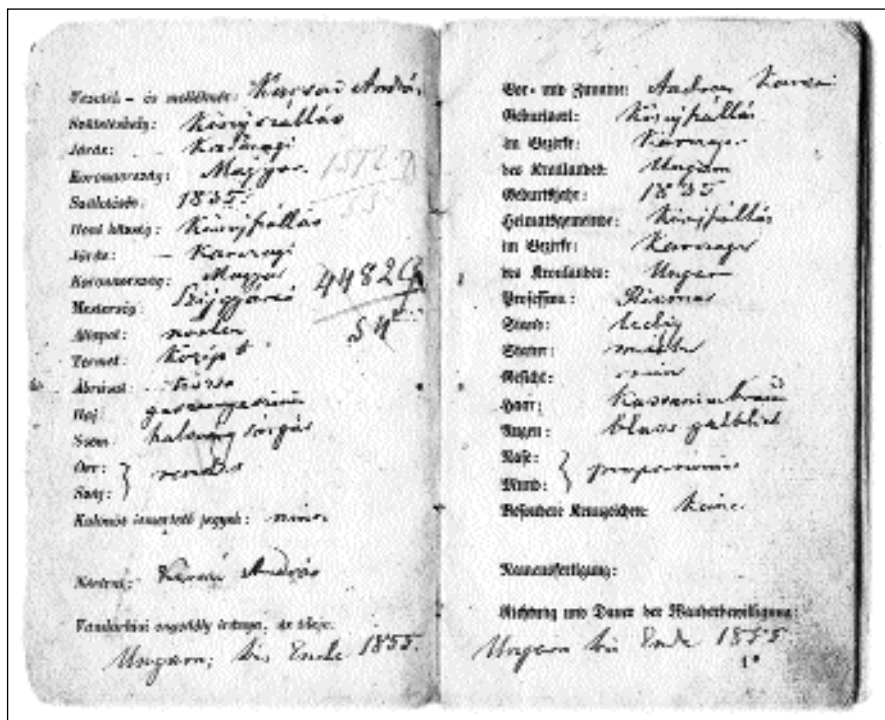 Vezeték- és melléknév: Karsai András
Születéshely: Kisújszállás
Járás: Karczagi
Koronaország: Magyar
Születésév: 1835.
Honi község: Kisújszállás
Járás: Karczagi
Koronaország: Magyar
Mesterség: Szijgyártó
Állapot: nőtlen
Termet: közép
Ábrázat:
Haj: gesztenyeszinü
Szem: halavány sárgás
Orr:
Száj: rendes
Különös ismertető jegyek: nincs
Névírás: Karsai András
Vándorlási engedély iránya, és ideje:
Ungarn, bis Ende 1855.
4482
Vor- und Zuname: Andreas Karsai
Geburtsort: Kisujszállás
im Bezirke: Karczager
des Kronlandes: Ungarn
Geburtsjahr: 1835
Heimatsgemeinde: Kisujszállás
im Bezirke: Karczager
des Kronlandes: Ungarn
Profession: Riemer
Stand: ledig
Statur: mittel
Gesicht:
Haar: Kastanienbraun
Augen: blass gelblich
Nase:
Mund: proportionirt
Besondere Kennzeichen: Keine
Namensfertigung:
Richtung und Dauer der Wanderbewilligung:
Ungarn bis Ende 1855.
1*